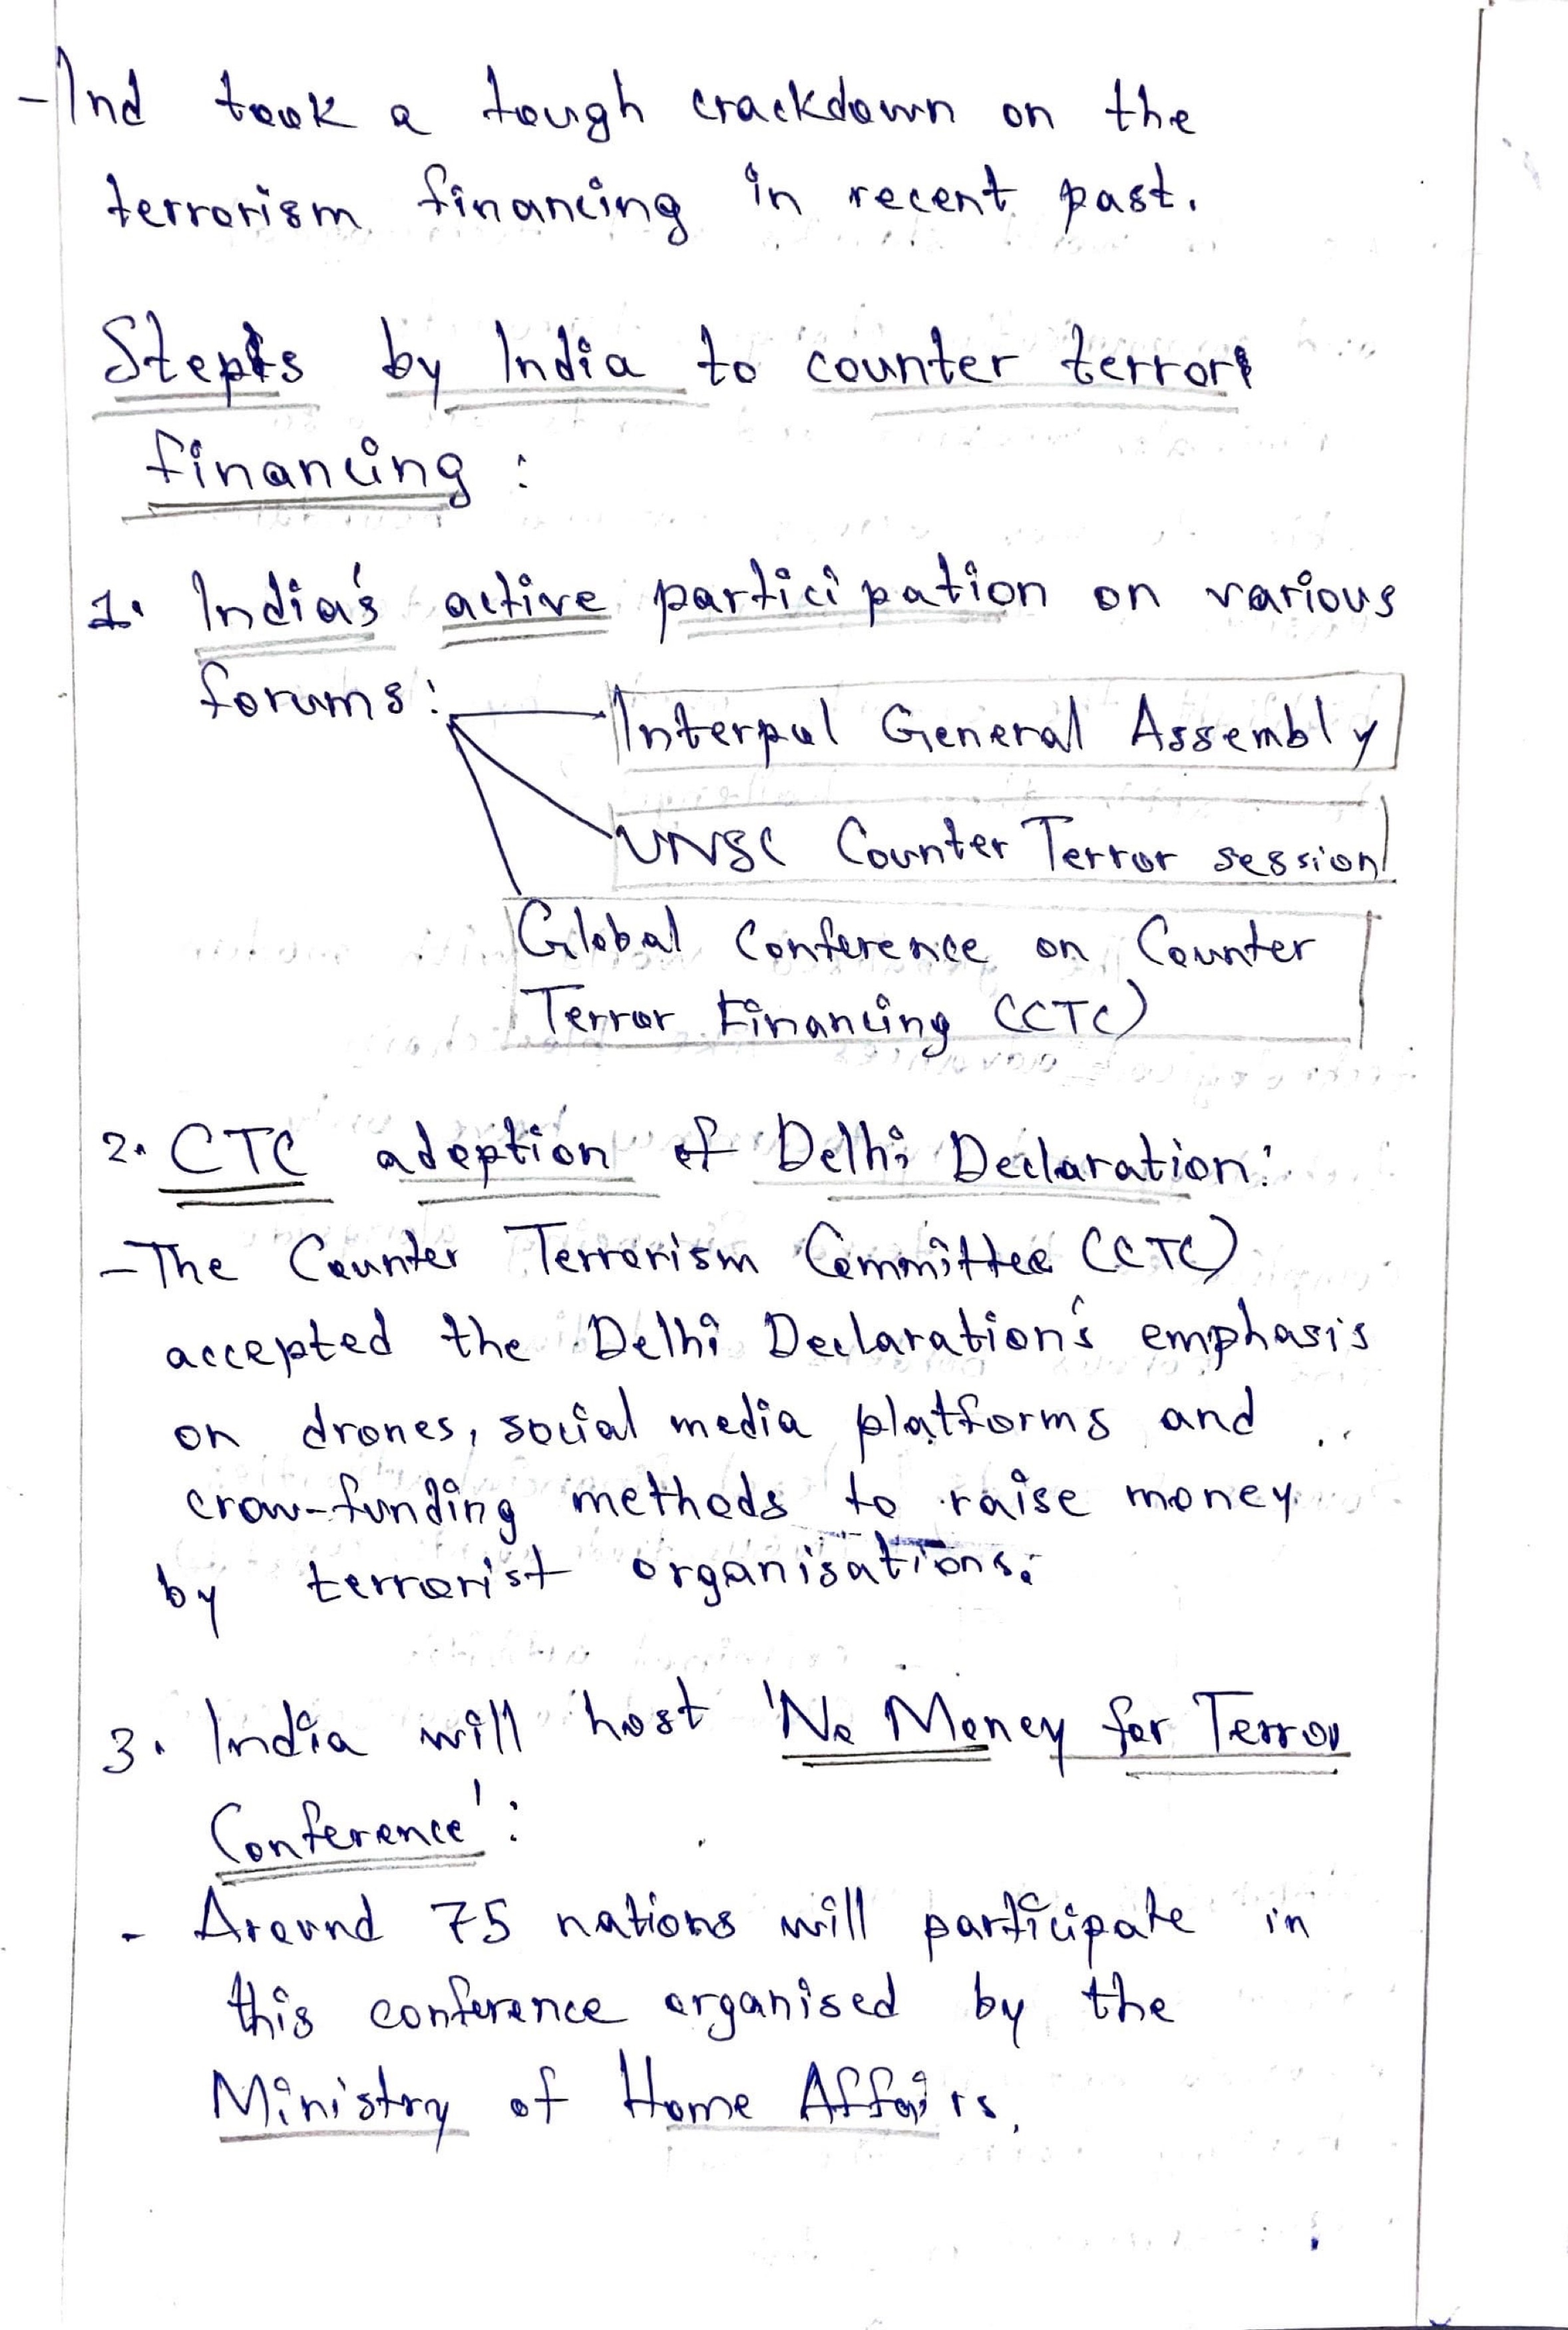 - Ind took a tough crackdown on the
terrorism financing in recent past.
Steps by India to counter terror
financing :
1. India's active participation on various
forums:
Interpol General Assembly
UNSC Counter Terror session
Global Conference on Counter
Terror Financing (CTC)
2. CTC adoption of Delhi Declaration:
- The Counter Terrorism Committee (CTC)
accepted the Delhi Declaration's emphasis
on drones, social media platforms and
crow-funding methods to raise money
by terrorist organisations.
3. India will host 'No Money for Terror
Conference':
- Around 75 nations will participate in
this conference organised by the
Ministry of Home Affairs.